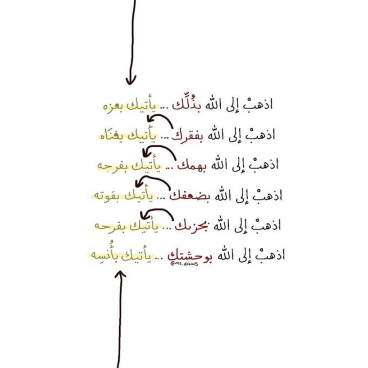 اذهبْ إلى الله بذُلِّك ... يأتيك بعزه
اذهبْ إلى الله بفقرك ... يأتيك بغناه
اذهبْ إلى الله بهمك ... يأتيك بفرجه
اذهبْ إلى الله بضعفك ... يأتيك بقوته
اذهبْ إلى الله بحزنك ... يأتيك بفرحه
اذهبْ إلى الله بوحشتك ... يأتيك بأُنسِه